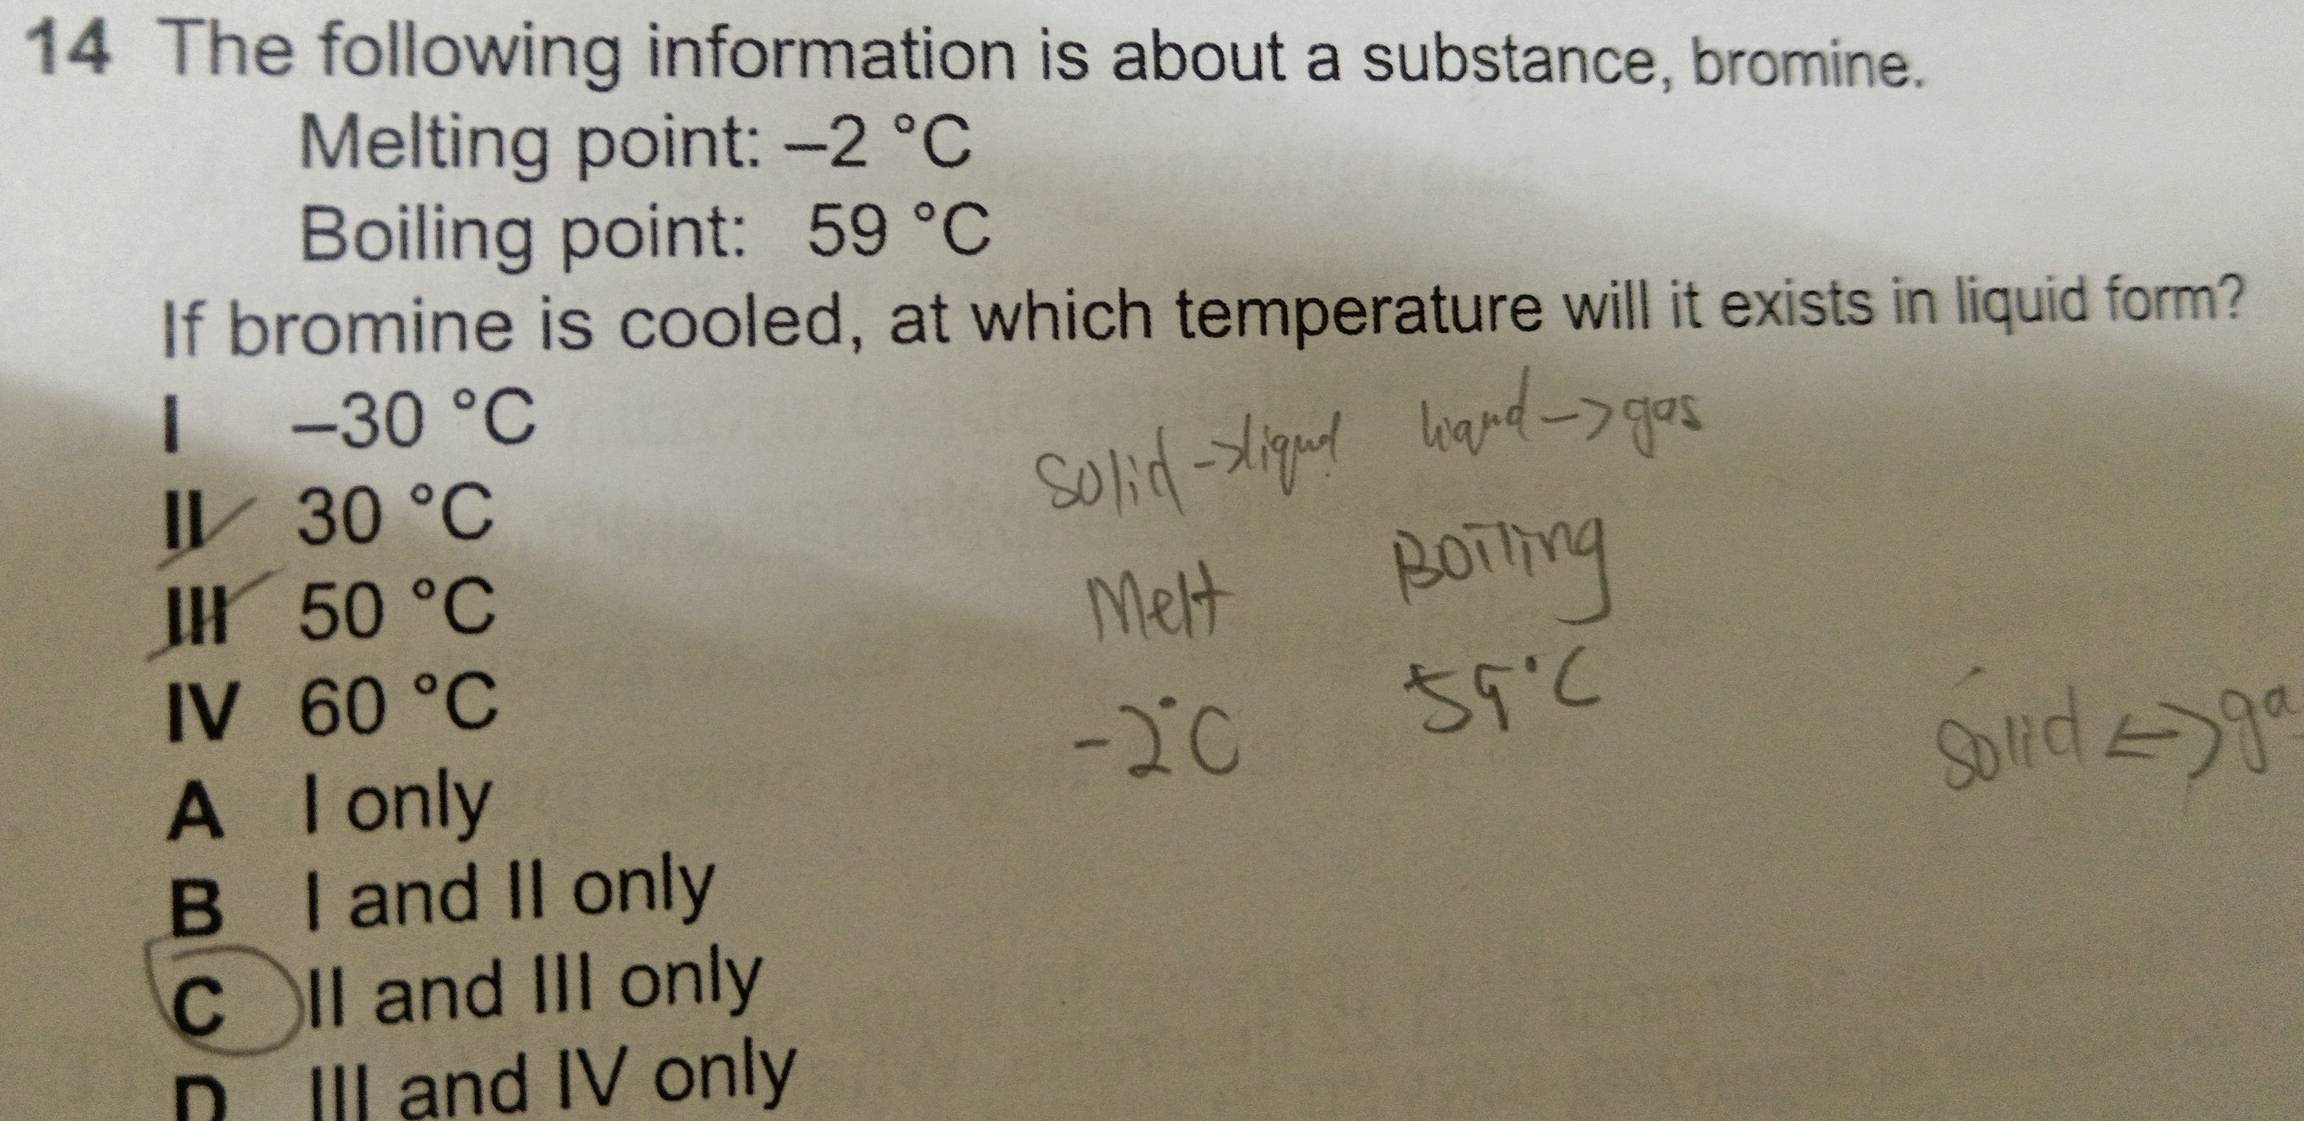 14 The following information is about a substance, bromine.
Melting point: –2 °C
Boiling point: 59 °C
If bromine is cooled, at which temperature will it exists in liquid form?
I –30 °C
II 30 °C
III 50 °C
IV 60 °C
solid -> liquid liquid -> gas
Melt Boiling
-2°C 59°C
solid <-> ga
A I only
B I and II only
C II and III only
D III and IV only